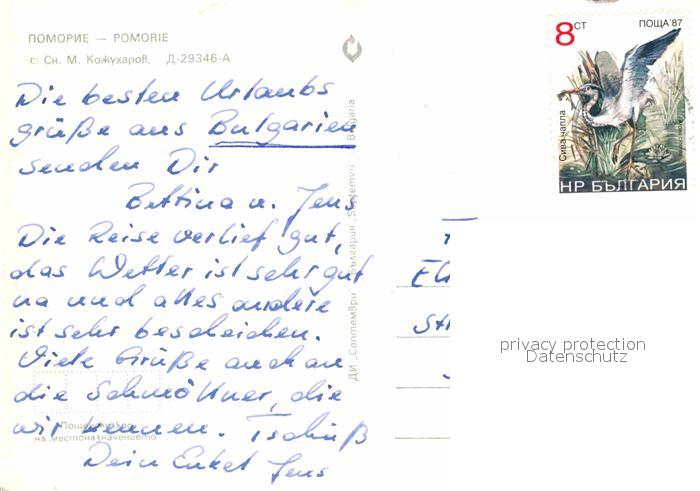 ПОМОРИЕ — POMORIE
с: Сн. М. Кожухаров. Д-29346-А
Die besten Urlaubs
grüße aus Bulgarien
senden Dir
Bettina u. Jens
Die Reise verlief gut,
das Wetter ist sehr gut
na und alles andere
ist sehr bescheiden.
Viele Grüße auch an
die Schmöllner, die
wir kennen. Tschüß
Dein Enkel Jens
Пощенски код
на местоназначението
ДИ „Септември" България „Septemvri" Bulgaria
8 СТ
ПОЩА '87
Сива чапла
НР БЪЛГАРИЯ
privacy protection
Datenschutz